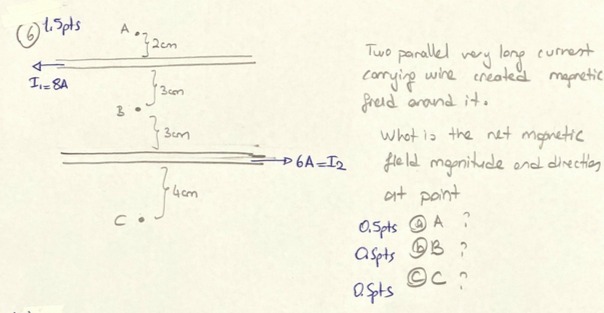 6 1.5pts
A
2cm
I₁=8A
3cm
B
3cm
6A=I₂
4cm
C
Two parallel very long current
carrying wire created magnetic
field around it.
What is the net magnetic
field magnitude and direction
at point
0.5pts a A ?
0.5pts b B ?
0.5pts c C ?